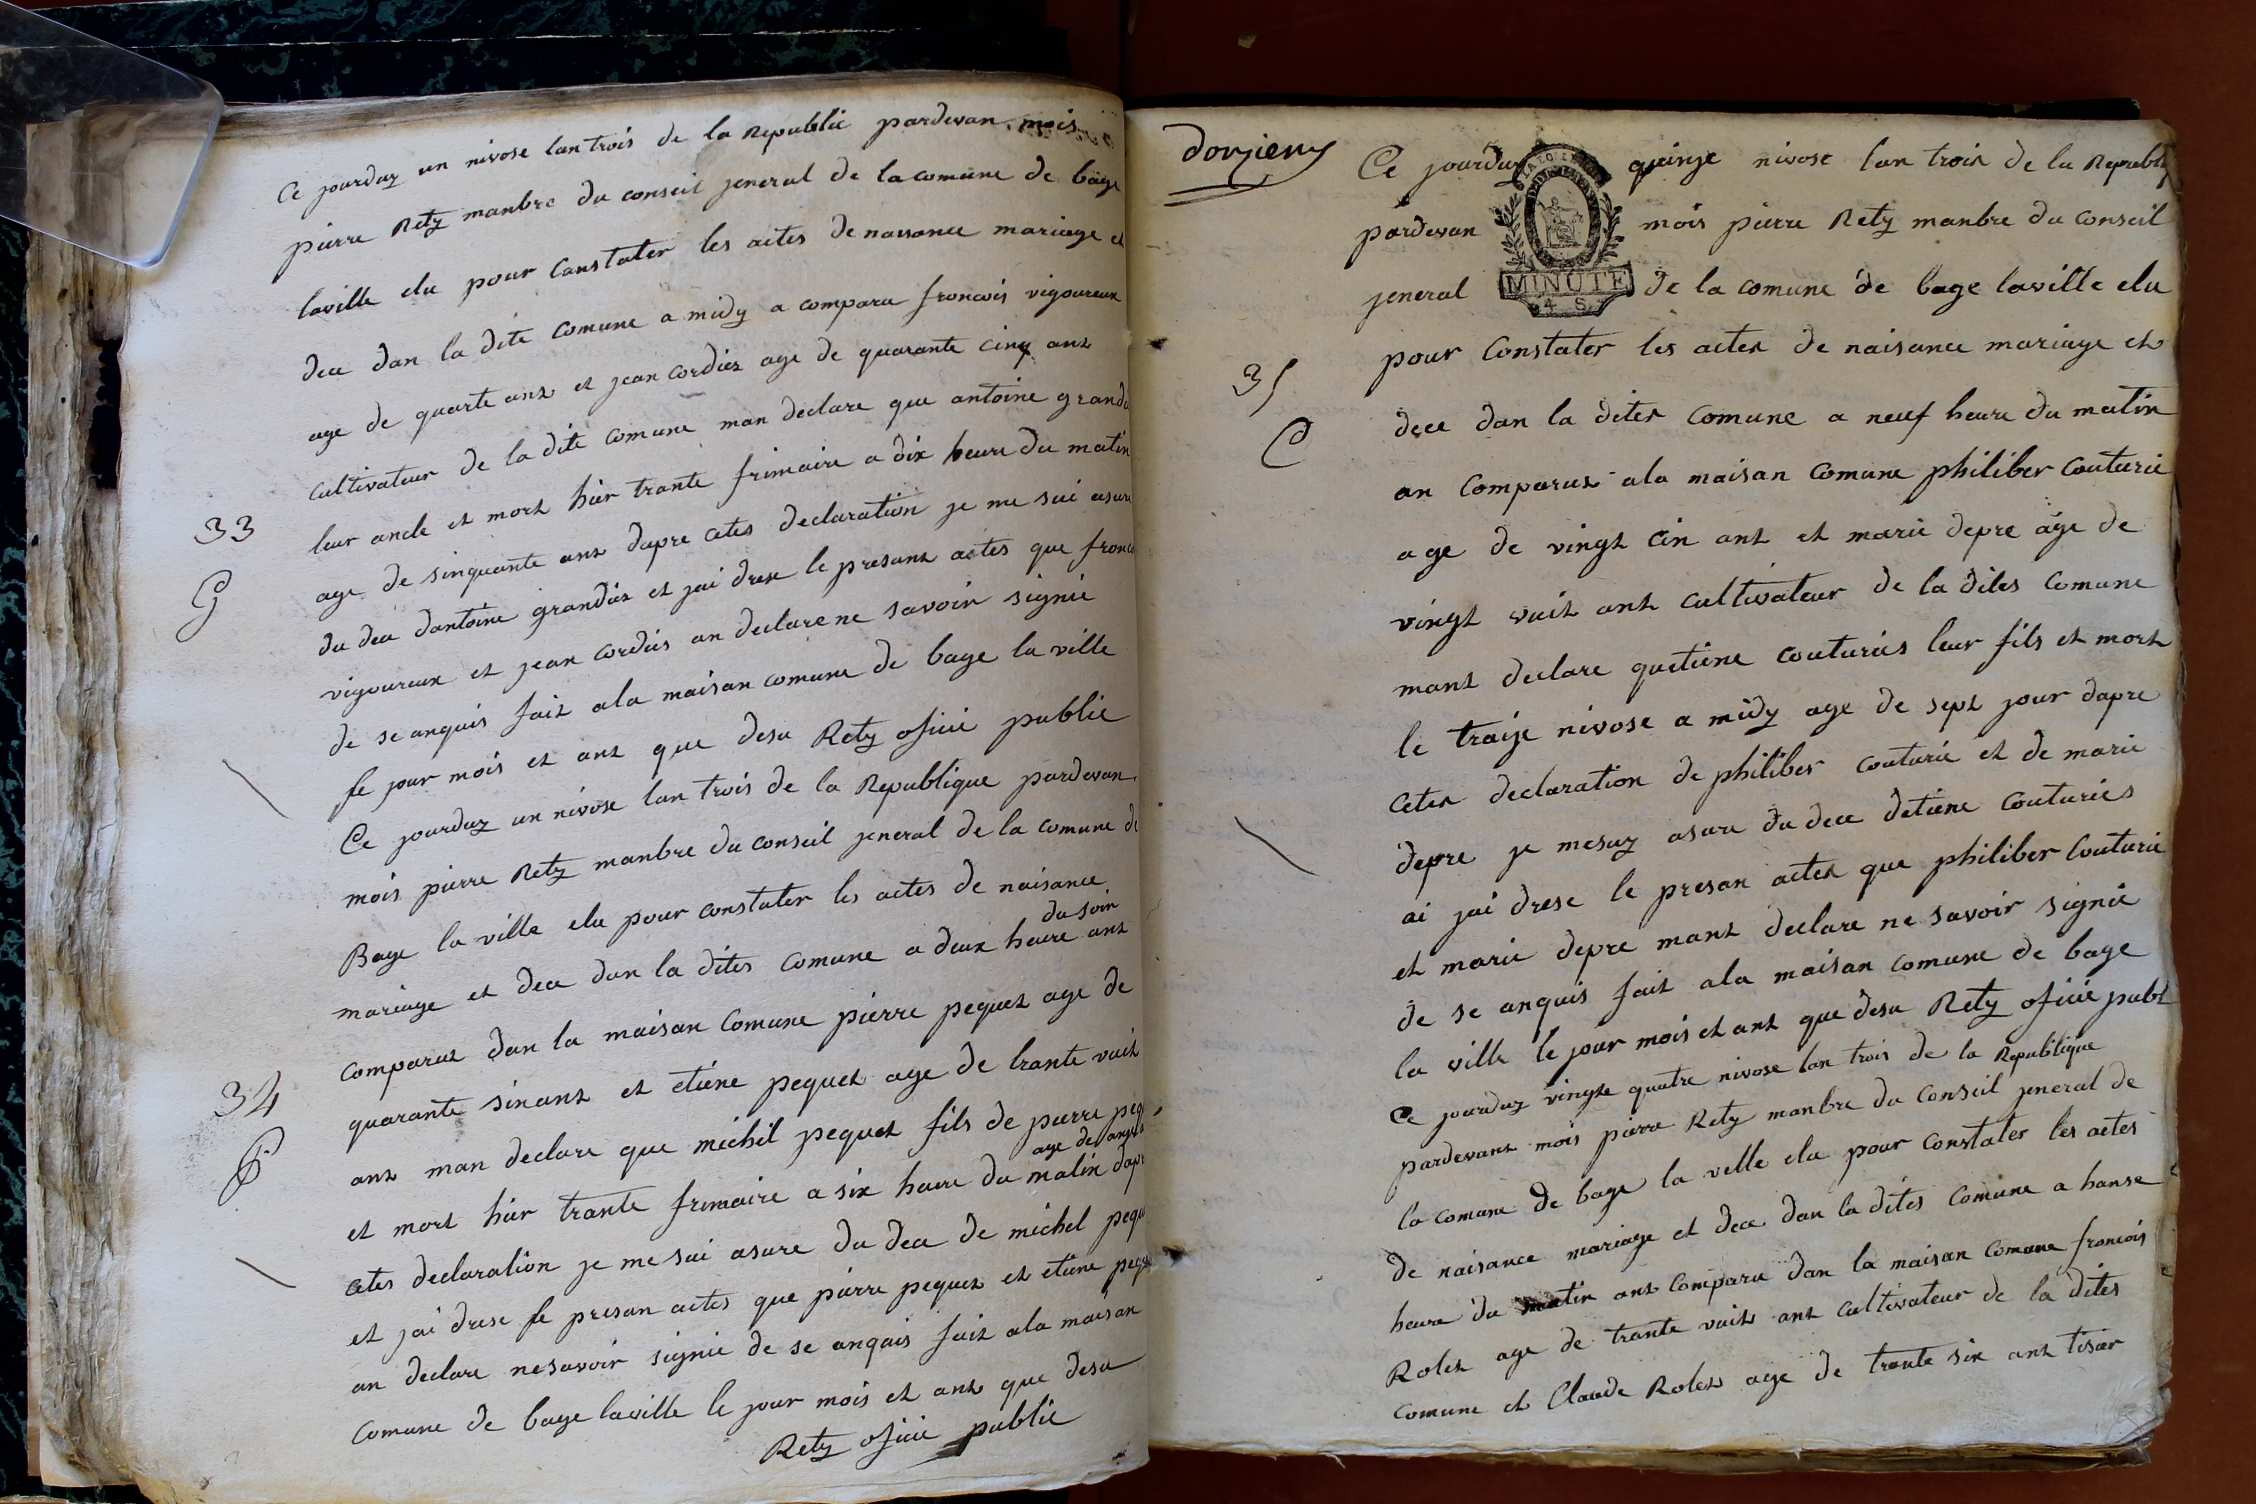 Ce jourduy un nivose lan trois de la Republic pardevan mois
pierre Rety manbre du conseil jeneral de la comune de bage
laville elu pour Constater les actes de naisance mariage et
dece dan la dite comune a midy a comparu francois vigoureux
age de quarte ans et jean cordier age de quarante cinq ans
cultivateur de la dite comune man declare que antoine grandi
leur oncle et mort hier trante frimaire a dix heure du matin
33
age de sinquante ans dapre cetes declaration je me sui asure
G
du dece dantoine grandis et jai drese le presant actes que franco
vigoureux et jean cordies an declare ne savoir signie
de se anquis fait ala maisan comune de bage la ville
le jour mois et ant que desu Rety oficie public
Ce jourduy un nivose lan trois de la Republique pardevan
mois pierre Rety manbre du conseil jeneral de la comune de
Bage la ville elu pour constater les actes de naisance
du soir
mariage et dece dan la dites comune a deux heure ant
comparut dan la maisan Comune pierre pequet age de
34
quarante sinant et etiene pequet age de trante vuit
P
ans man declare que michil pequet fils de pierre peq
age de
et mort hier trante frimaire a six heure du matin dapr
cetes declaration je me sui asure du dece de michel pequ
et jai drese le presan actes que pierre pequet et etiene pequ
an declare nesavoir signie de se anquis fait ala maisan
comune de bage laville le jour mois et ant que desu
Rety oficie public
donzieny
Ce jourduy quinze nivose lan trois de la Republiq
pardevan mois pierre Rety manbre du conseil
MINUTE
4 S
jeneral de la comune de bage laville elu
pour Constater les actes de naisance mariage et
35
dece dan la dites comune a neuf heure du matin
C
an comparut ala maisan comune philiber couturie
age de vingt cin ant et marie depre age de
vingt vuit ant cultivateur de la dites comune
mant declare quetiene couturies leur fils et mort
le traize nivose a midy age de sept jour dapre
cetes declaration de philiber couturie et de marie
depre je mesuy asure du dece detiene couturies
ai jai drese le presan actes que philiber Couturie
et marie depre mant declare ne savoir signie
de se anquis fait ala maisan comune de bage
la ville le jour mois et ant que desu Rety oficie publ
Ce jourduy vingte quatre nivose lan trois de la Republique
pardevant mois pierre Rety manbre du Conseil jeneral de
la comune de bage la velle elu pour Constater les actes
de naisance mariage et dece dan la dites comune a hanse
heure du matin ant comparu dan la maisan Comune francois
Rolet age de trante vuit ant cultivateur de la dites
comune et Claude Rolet age de trante six ant tisar